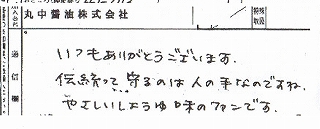 丸中醤油株式会社
通信欄
いつもありがとうございます.
伝統って守るのは人の手なのですね.
やさしいしょうゆ味のファンです.